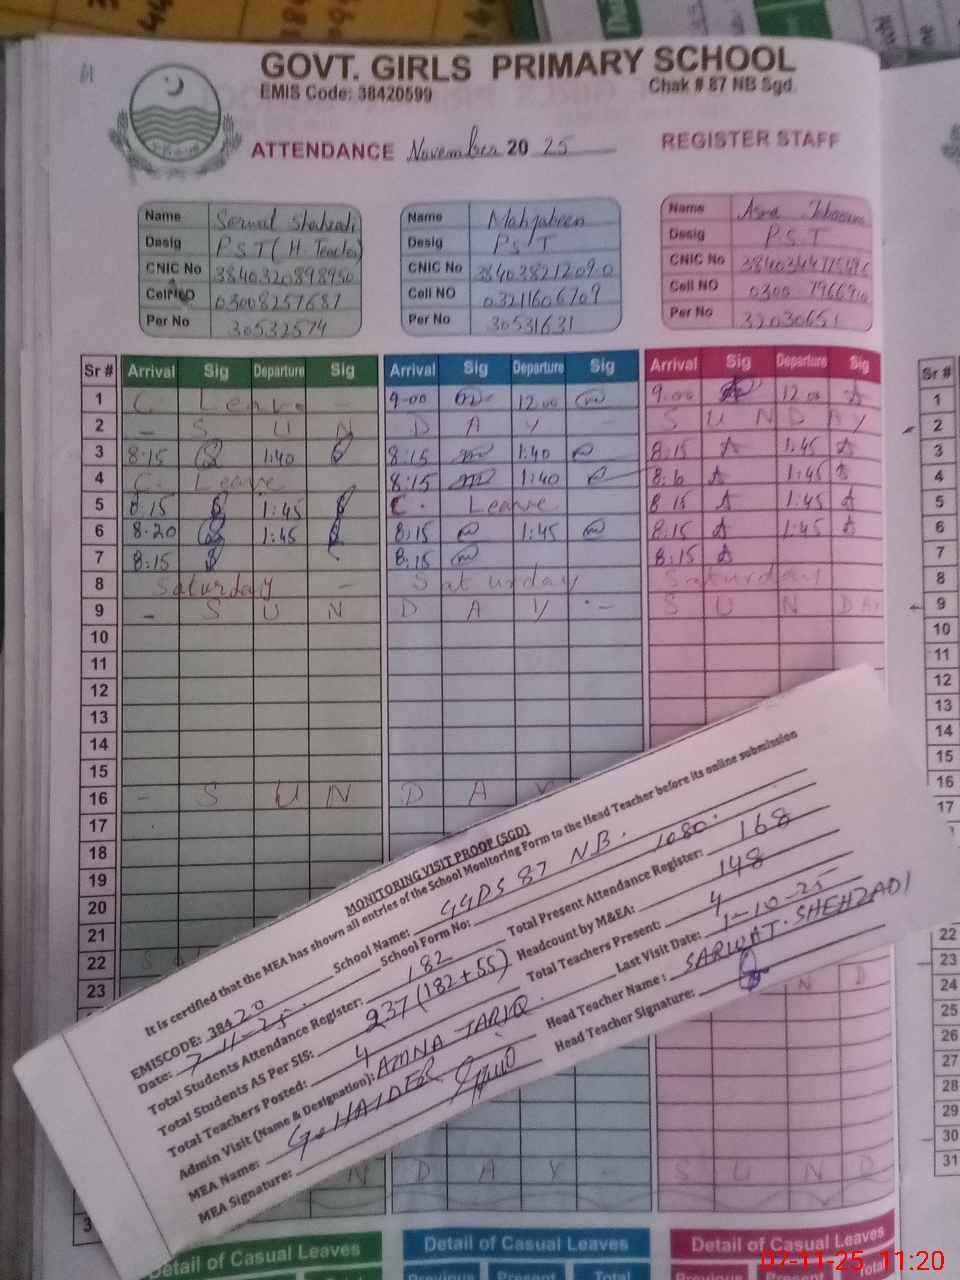 GOVT. GIRLS PRIMARY SCHOOL
EMIS Code: 38420599 Chak # 87 NB Sgd.
ATTENDANCE November 20 25 REGISTER STAFF
Name Desig P S T ( H. Teacher)
CNIC No 3840320898950
Cell NO 03008257687
Per No 30532574
Name Mahjabeen
Desig P S T
CNIC No 3840382212090
Cell NO 03211606709
Per No 30531631
Name Asra
Desig P.S.T
CNIC No
Cell NO 0300
Per No 32030651
Sr # Arrival Sig Departure Sig Arrival Sig Departure Sig Arrival Sig Departure Sig Sr #
1 C. Leave - 9-00 12 00 9.00 12 00 1
2 - S U N D A Y - S U N D A Y 2
3 8:15 1:40 8:15 1:40 8:15 1:45 3
4 C. Leave 8:15 1:40 1:45 4
5 8:15 1:45 C. Leave 8 15 1:45 5
6 8-20 1:45 8:15 1:45 8:15 1:45 6
7 8:15 8:15 8:15 7
8 Saturday - Saturday Saturday 8
9 - S U N D A Y - S U N DAY 9
10 10
11 11
12 12
13 13
14 14
15 15
16 - S U N D A Y 16
17 17
18
19
20
21
22 S 22
23 23
N D 24
25
26
27
28
29
30
N D A Y - S U N D 31
3
MONITORING VISIT PROOF (SGD)
It is certified that the MEA has shown all entries of the School Monitoring Form to the Head Teacher before its online submission
EMISCODE: 38420 School Name: GGPS 87 NB.
Date: 7-11-25. School Form No: 1080.
Total Students Attendance Register: 182 Total Present Attendance Register: 168
Total Students AS Per SIS: 237 (182+55) Headcount by M&EA: 148
Total Teachers Posted: 4 Total Teachers Present: 4
Admin Visit (Name & Designation): AMNA TARIQ. Last Visit Date: 1-10-25
MEA Name: G. HAIDER Head Teacher Name: SARWAT. SHEHZADI
MEA Signature: Head Teacher Signature:
Detail of Casual Leaves Detail of Casual Leaves Detail of Casual Leaves
Previous Present Total Previous Present Total
07-11-25, 11:20